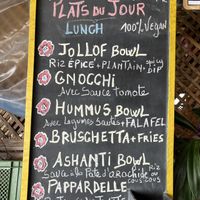 PLATS DU JOUR
LUNCH 100% VEGAN
JOLLOF BOWL
RIZ ÉPICÉ + PLANTAIN + SPICY DIP
GNOCCHI
Avec Sauce Tomate
HUMMUS BOWL
Avec Legumes Sautés + FALAFEL
BRUSCHETTA + FRIES
ASHANTI BOWL
Sauce à la Pâte d'ARACHIDE RIZ OU COUS COUS
PAPPARDELLE